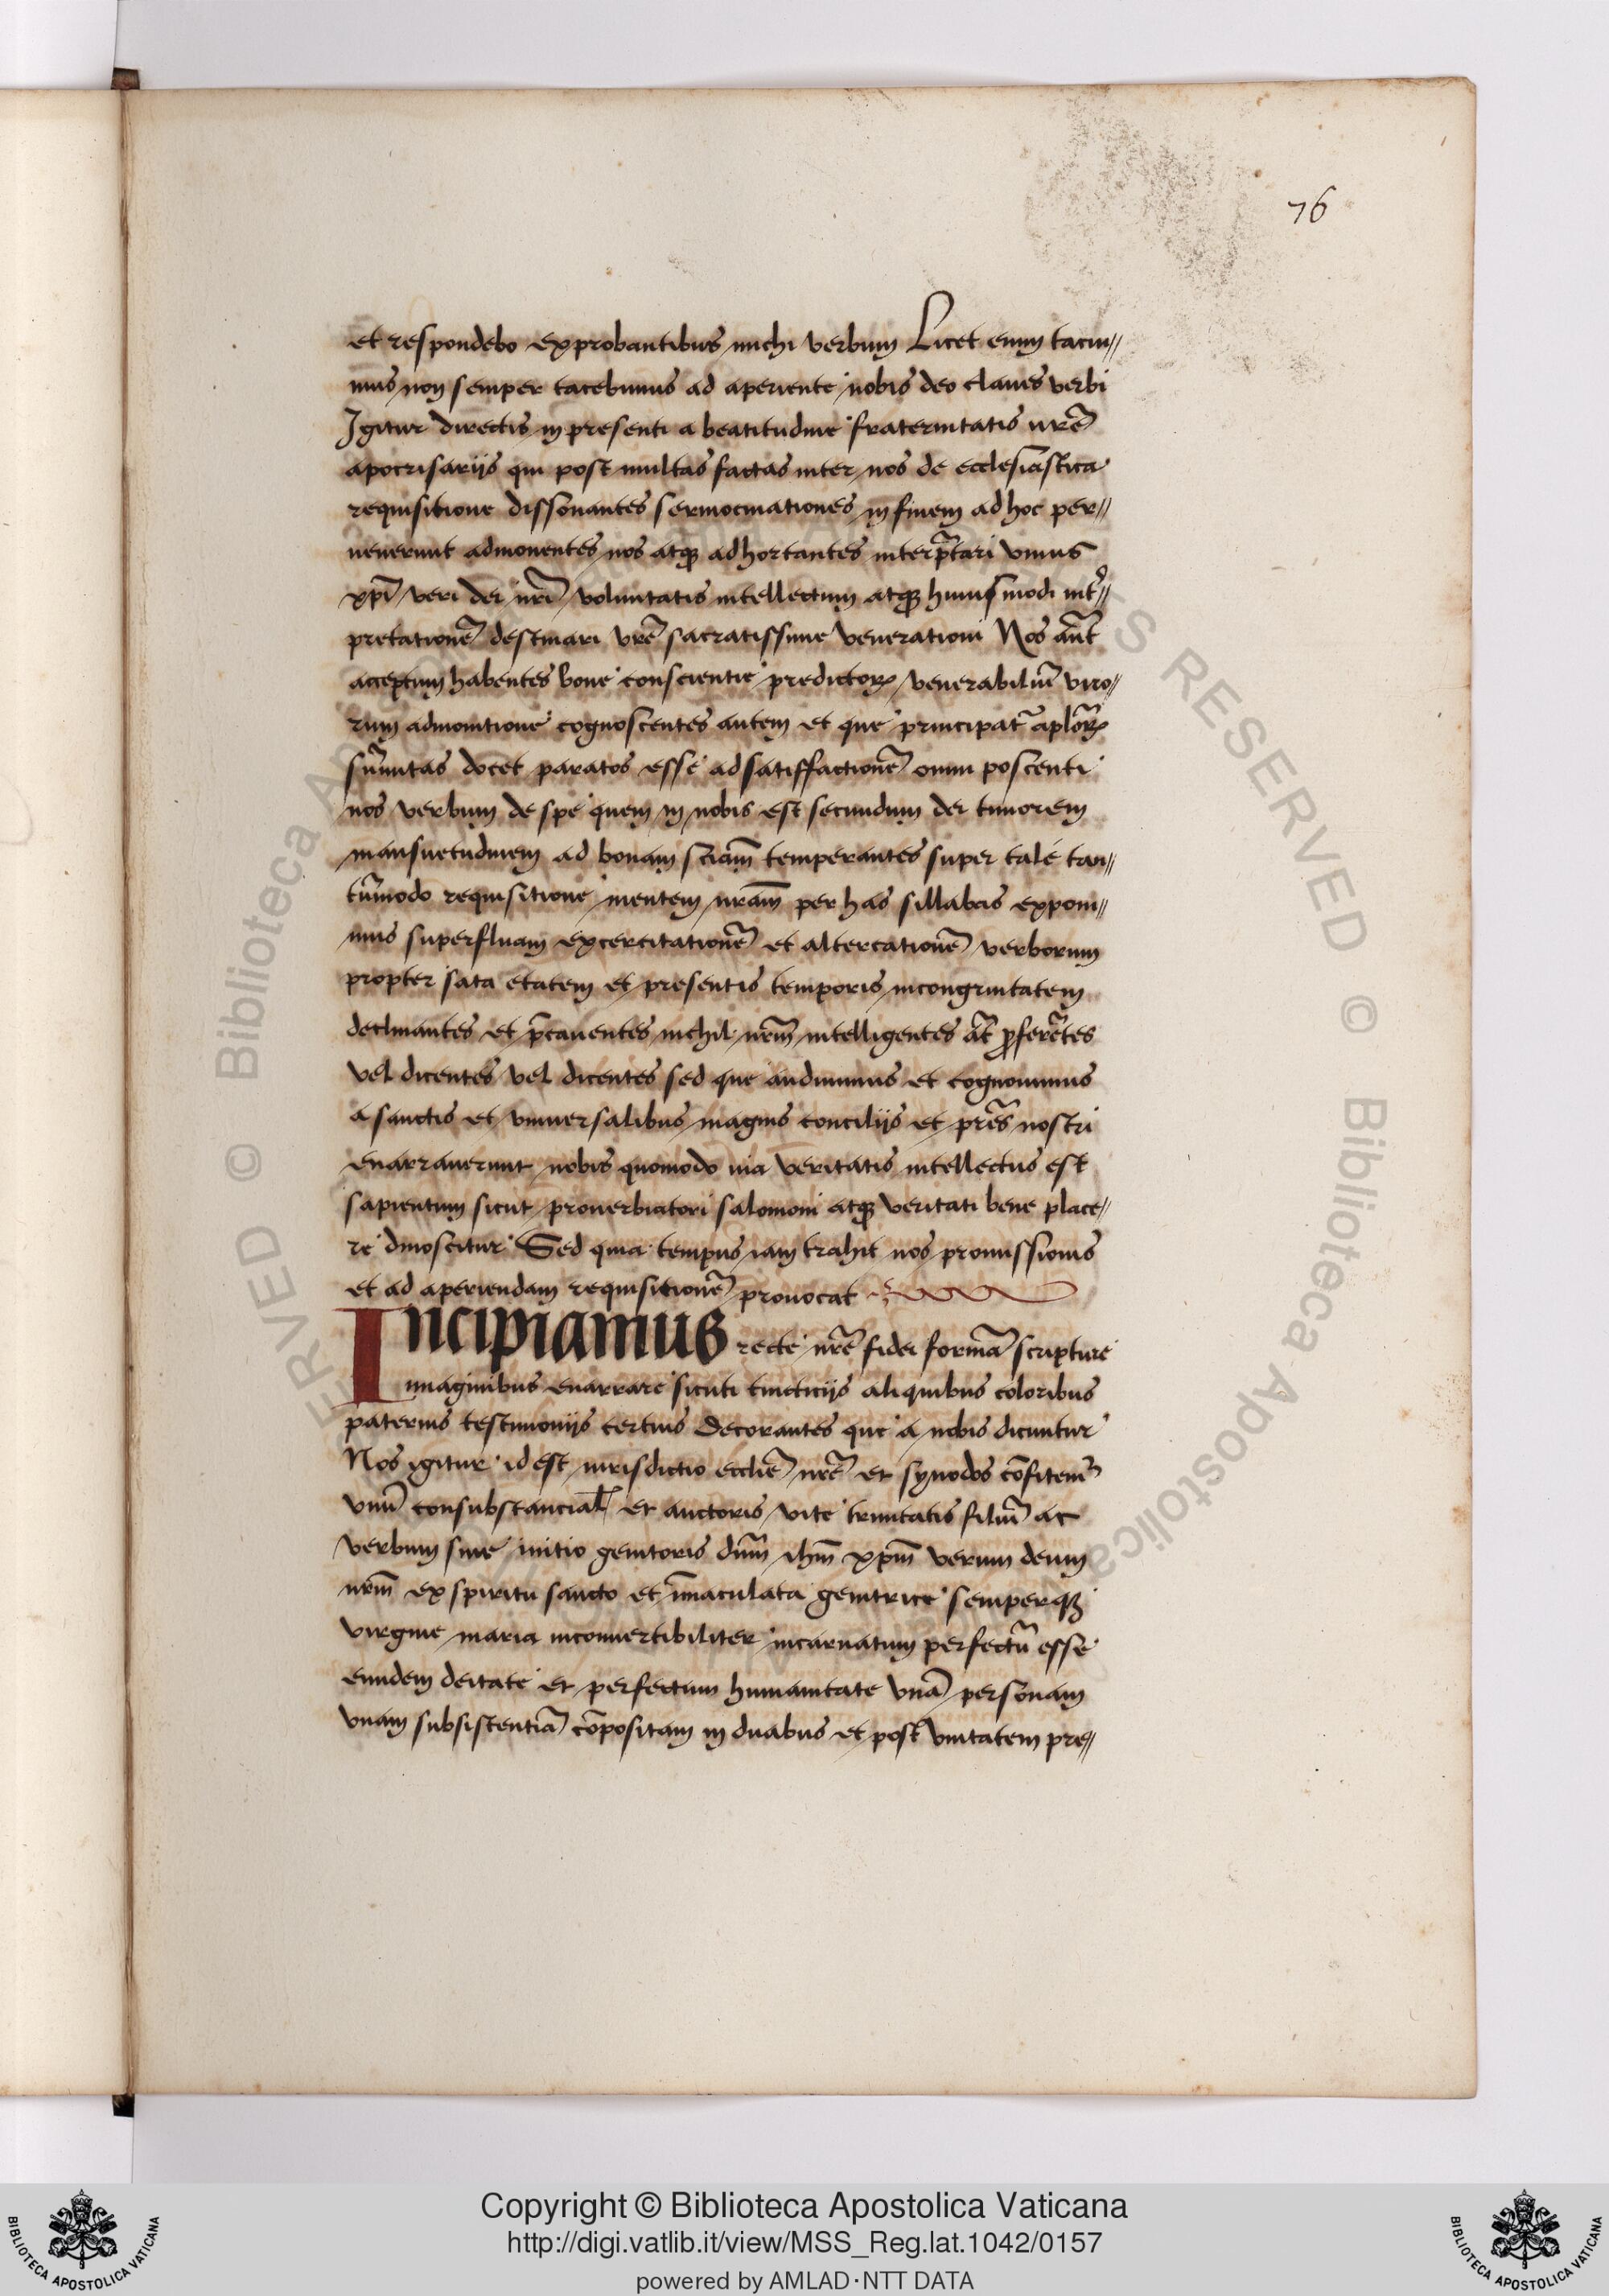 76
et respondebo exprobantibus michi verbum Licet enim tacui//
mus non semper tacebimus ad aperiente nobis deo claues verbi
Igitur directis in presenti a beatitudine fraternitatis vrē
apocrisarijs qui post multas factas inter nos de ecclesiastica
requisitione dissonantes sermocinationes in finem ad hoc per//
uenerunt admonentes nos atqꝫ adhortantes interp̄tari vnius
xp̄i veri dei nr̄i voluntatis intellectum atqꝫ huiusmodi int̄//
pretationē destinari vrē sacratissime venerationi Nos aūt
acceptum habentes bone conscientie predictoꝝ venerabiliū viro//
rum admonitione cognoscentes autem et que principat̄ aplōꝝ
sūmitas docet paratos esse ad satiffactionē omni poscenti
nos verbum de spe quem in nobis est secundum dei timorem
mansuetudinem ad bonam sciām temperantes super tale tan//
tūmodo requisitione mentem nrām per has sillabas exponi//
mus superfluam excercitationē et altercationē verborum
propter sata etatem et presentis temporis incongruitatem
declinantes et p̄cauentes nichil nrm̄ intelligentes āt ꝓferētes
vel dicentes vel dicentes sed que audiuimus et cognouimus
a sanctis et vniuersalibus magnis concilijs et prēs nostri
enarrauerunt nobis quomodo via veritatis intellectus est
sapientum sicut prouerbiatori salomoni atqꝫ veritati bene place//
re dinoscitur Sed quia tempus iam trahit nos promissionis
et ad aperiendam requisitionē prouocat
Incipiamus recte nrē fidei formā scripture
imaginibus enarrare sicuti tincticijs aliquibus coloribus
paternis testimonijs certius decorantes que a nobis dicuntur
Nos igitur id est iurisdictio ecclīe nrē et synodos cōfitem̄
vnū consubstancial̄ et auctoris vite trinitatis filiū ac
verbum sine initio genitoris dn̄m ihm̄ xpm̄ verum deum
nrm̄ ex spiritu sancto et īmaculata genitrice semperqꝫ
virgine maria inconuertibiliter incarnatum perfectū esse
eundem deitate et perfectum humanitate vnā personam
vnam subsistentiā cōpositam in duabus et post vnitatem pre//
Copyright © Biblioteca Apostolica Vaticana
http://digi.vatlib.it/view/MSS_Reg.lat.1042/0157
powered by AMLAD·NTT DATA
BIBLIOTECA APOSTOLICA VATICANA
BIBLIOTECA APOSTOLICA VATICANA